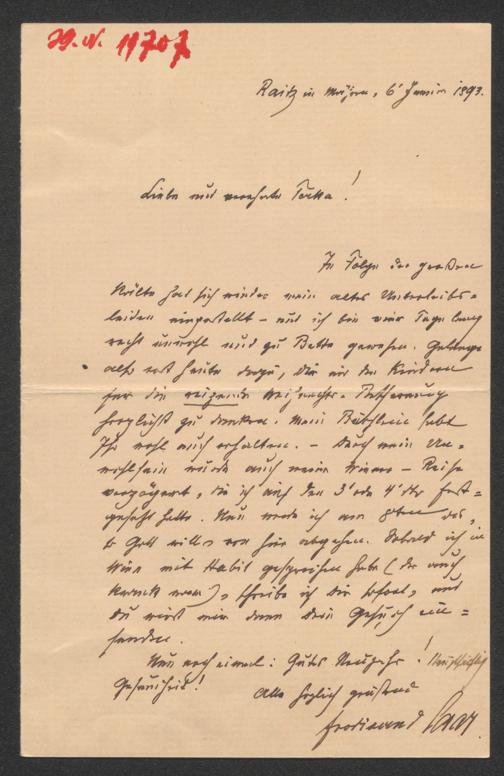 J.N. 19707
Raitz in Mähren, 6 Jänner 1893.
Liebe und verehrte Tetta!
In Folge der großen
Kälte hat sich wieder mein altes Unterleibs-
leiden eingestellt – und ich bin vier Tage lang
recht unwohl und zu Bette gewesen. Gelange
also erst heute dazu, Dir und den Kindern
für die reizende Weihnachts-
herzlichst zu danken. Mein Büchlein habt
Ihr wohl auch erhalten. – Durch mein Un-
wohlsein wurde auch meine Wiener-Reise
verzögert, die ich auf den 3' oder 4' fest-
gesetzt hatte. Nun werde ich am 8ten
so Gott will, von hier abgehen. Sobald ich in
Wien mit Habit gesprochen habe (der auch
krank war), schreibe ich Dir sofort, und
Du wirst mir dann Dein Gesuch ein-
senden.
Nun noch einmal: Gutes Neujahr!
Gesundheit! Alle herzlich grüßend
Ferdinand Saar.